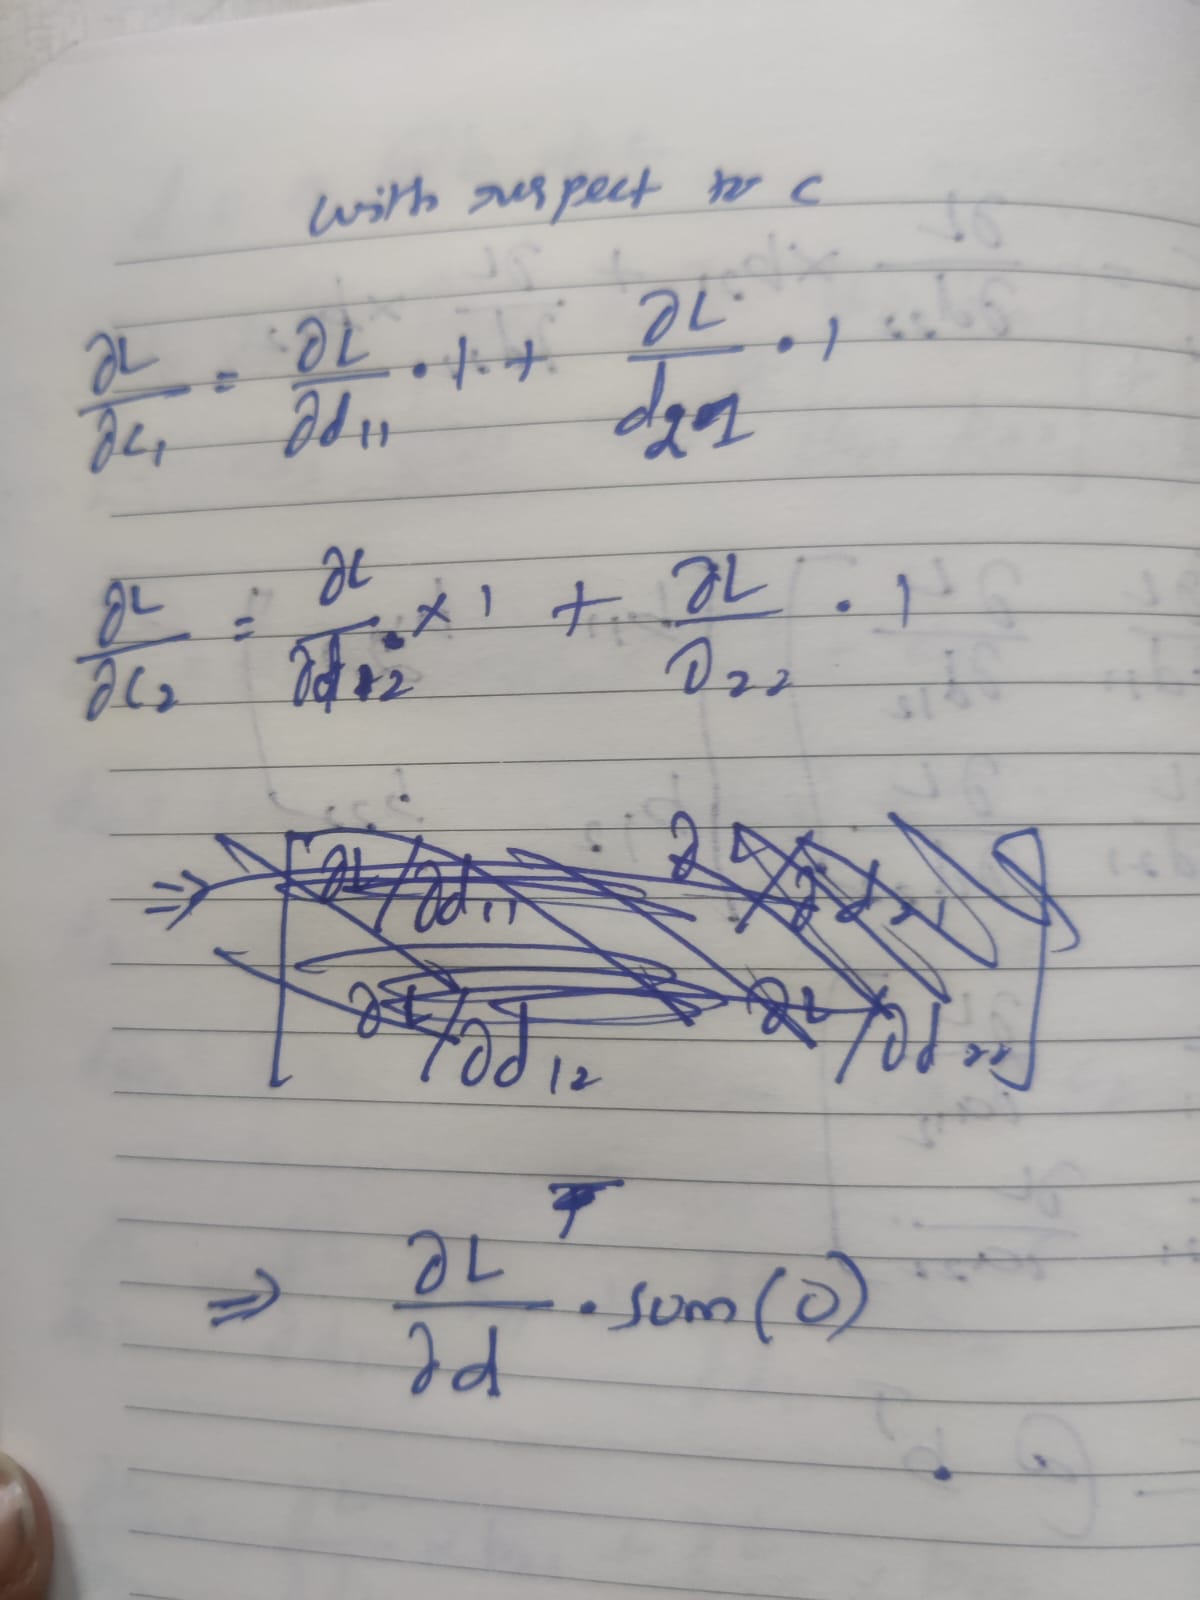 with respect to c
∂L/∂c₁ = ∂L/∂d₁₁ · 1 + ∂L/d₂₁ · 1
∂L/∂c₂ = ∂L/∂d₁₂ · × 1 + ∂L/∂₂₂ · 1
⇒ [ ∂L/∂d₁₁ ∂ / ∂d₂₁
∂L/∂d₁₂ ∂L/∂d₂₂ ]
⇒ ∂L/∂d · sum(0)